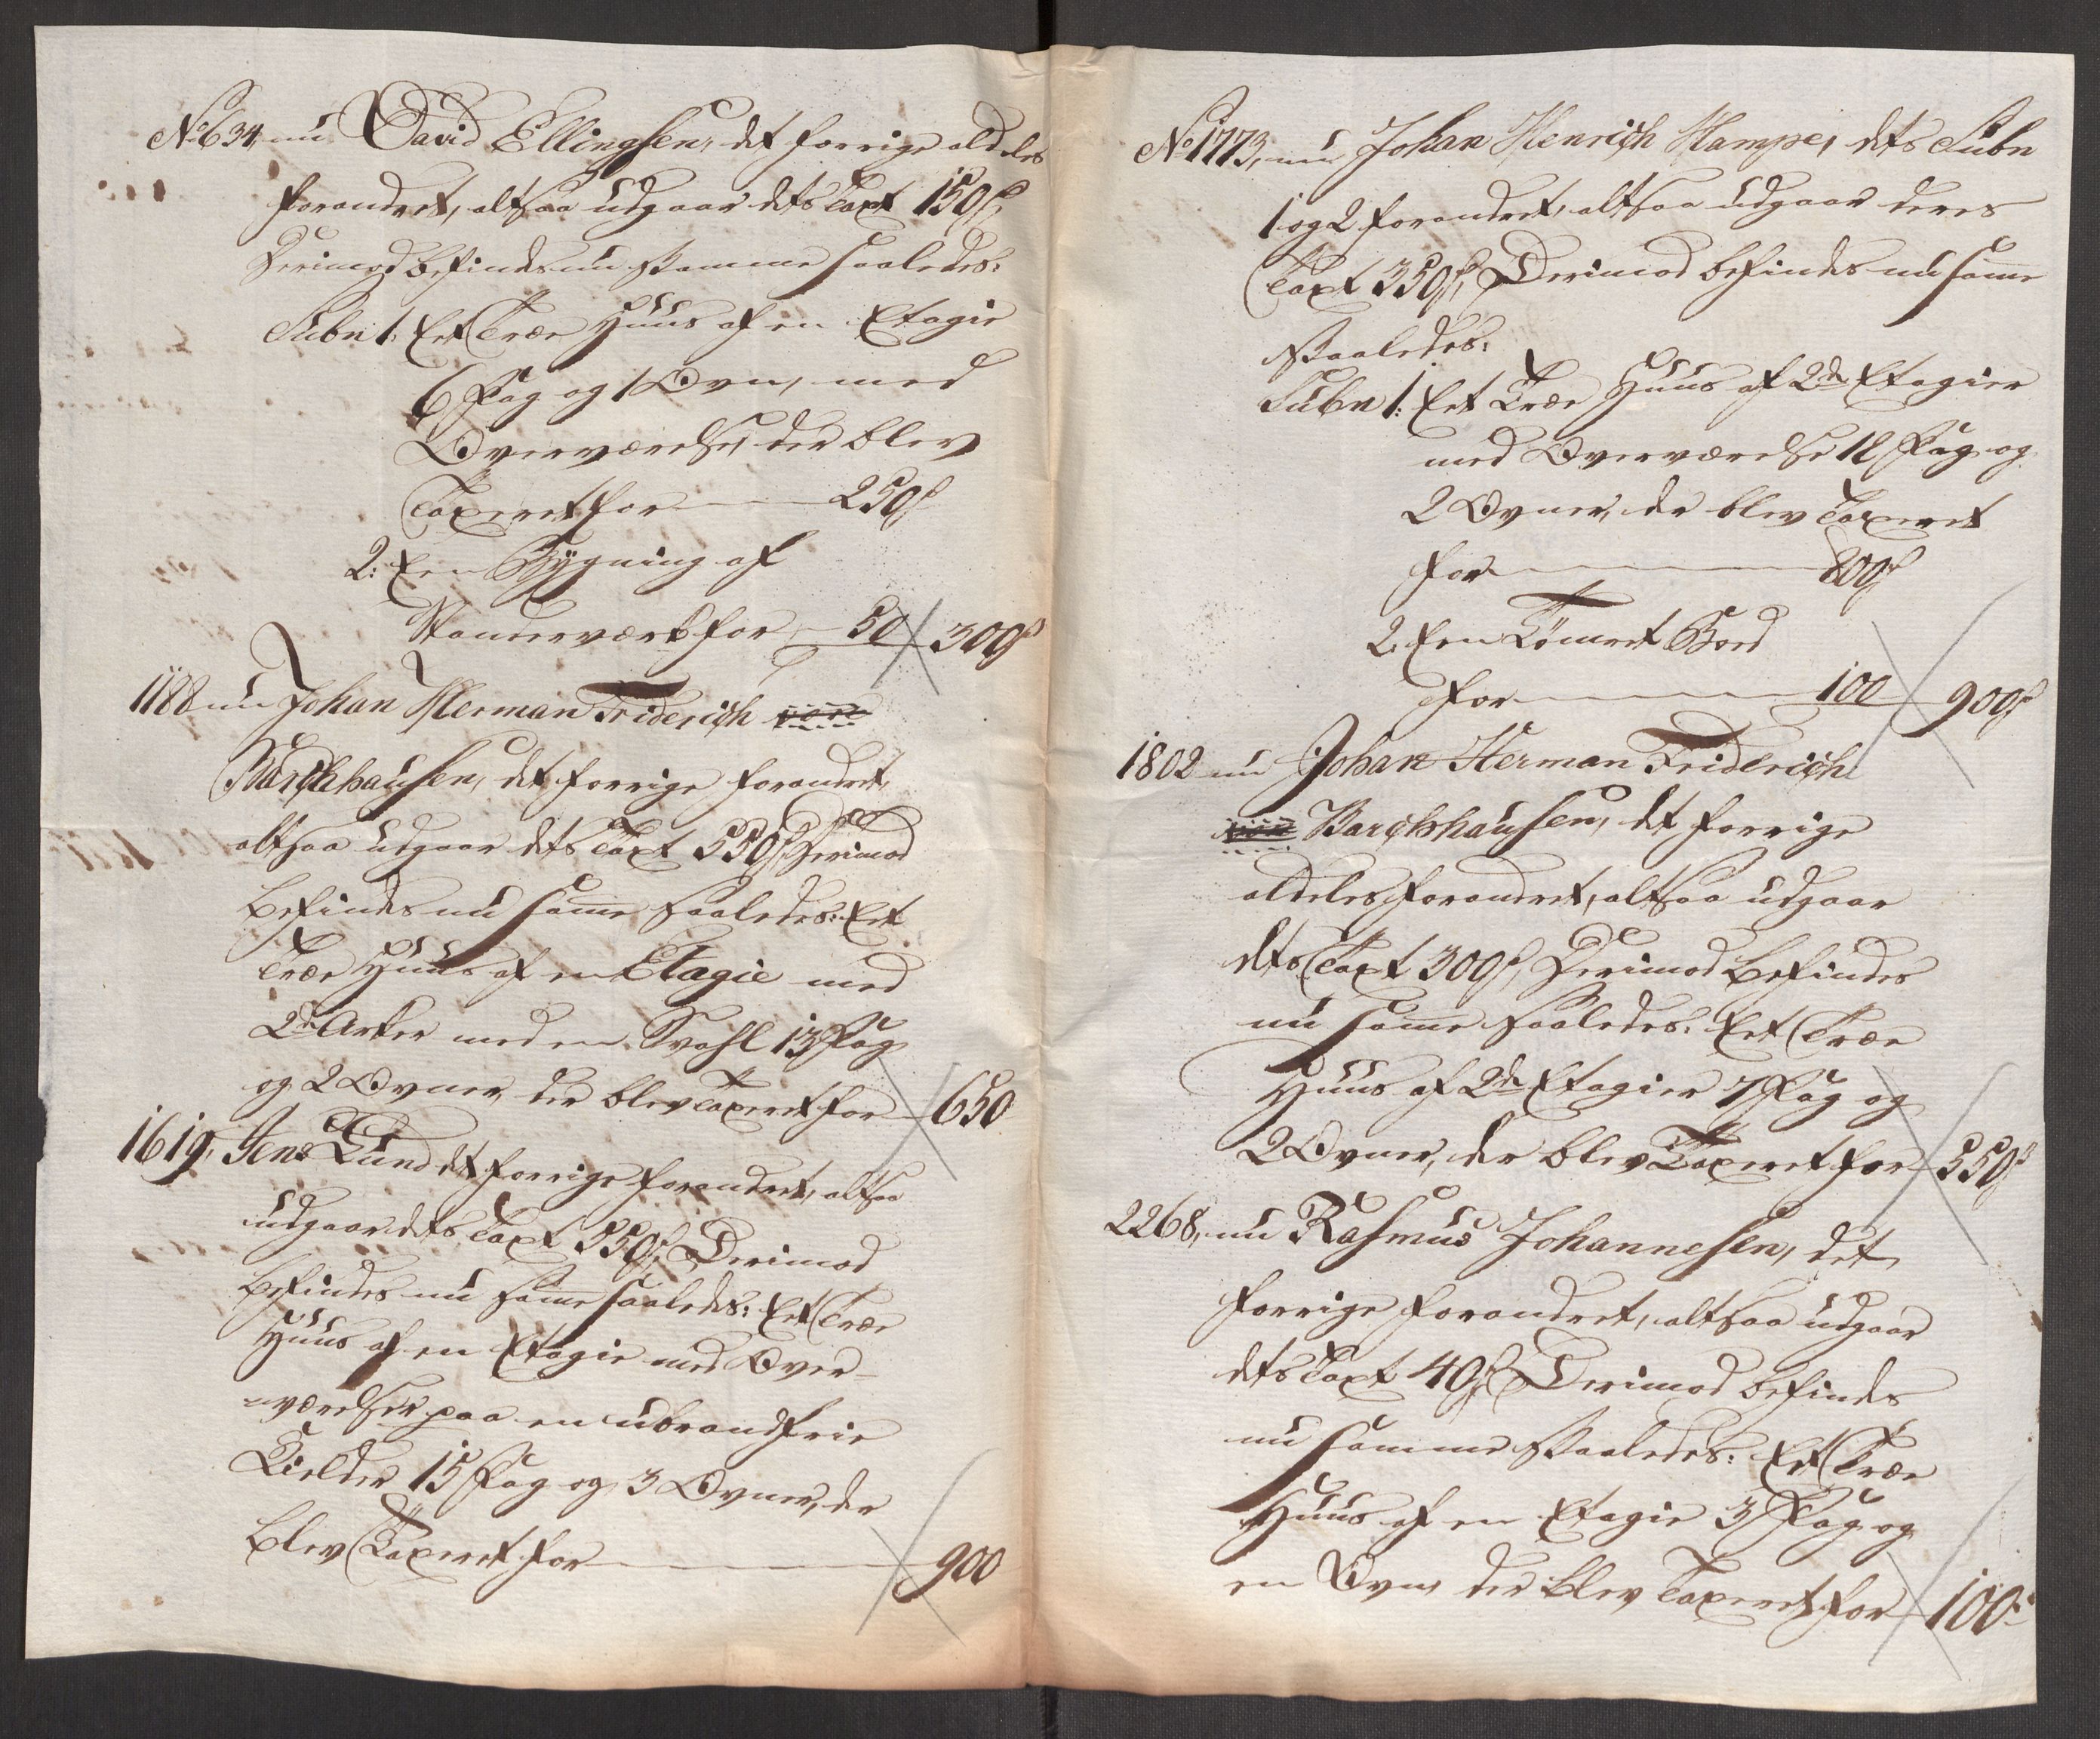 No 634, nu David Ellingsen, det forrige aldeles
forandret, altsaa udgaar dets Taxt 150 rd,
Derimod befindes nu samme saaledes:
Subn 1. Eet Træe Huus af en Etagie
6 Fag og 1 Ovn, med
Overværelse, der blev
Taxeret for 250 rd
2: Een Bygning af
Stanværk for 50 300 rd
1188 nu Johan Herman Friderich von
Barchhausen, det forrige forandret,
altsaa udgaar dets Taxt 550 rd, Derimod
befindes nu same saaledes: Eet
Træe Huus af en Etagie med
2de Arker med en Svahl 13 Fag
og 2 Ovner, der blev taxeret for 650
1619, Jens Lund det forrige forandret, altsaa
udgaar dets Taxt 550 rd, Derimod
befindes nu same saaledes: Eet Træe
Huus af en Etagie med Over-
værelser paa en ubrandfrie
Kielder 15 Fag og 3 Ovner, der
blev Taxeret for 900
No 1773, nu Johan Henrich Hampe, dets Subn
1 og 2 forandret, altsaa udgaar deres
Taxt 350 rd, Derimod befindes nu same
saaledes:
Subn 1: Eet Træe Huus af 2de Etagier
med Overværelse 12 Fag og
2 Ovner, der blev Taxeret
for 800 rd
2. Een Tømret Boed
for 100 900 rd
1802 nu Johan Herman Friderich
von Barchhausen, det forrige
aldeles forandret, altsaa udgaar
dets Taxt 300 rd, Derimod befindes
nu same saaledes: Eet Træe
Huus af 2de Etagier 7 Fag og
2 Ovner, der blev Taxeret for 550 rd
2268, nu Rasmus Johannesen, det
forrige forandret, altsaa udgaar
dets Taxt 40 rd, Derimod befindes
nu samme saaledes: Eet Træe
Huus af en Etagie 3 Fag og
en Ovn, der blev Taxeret for 100